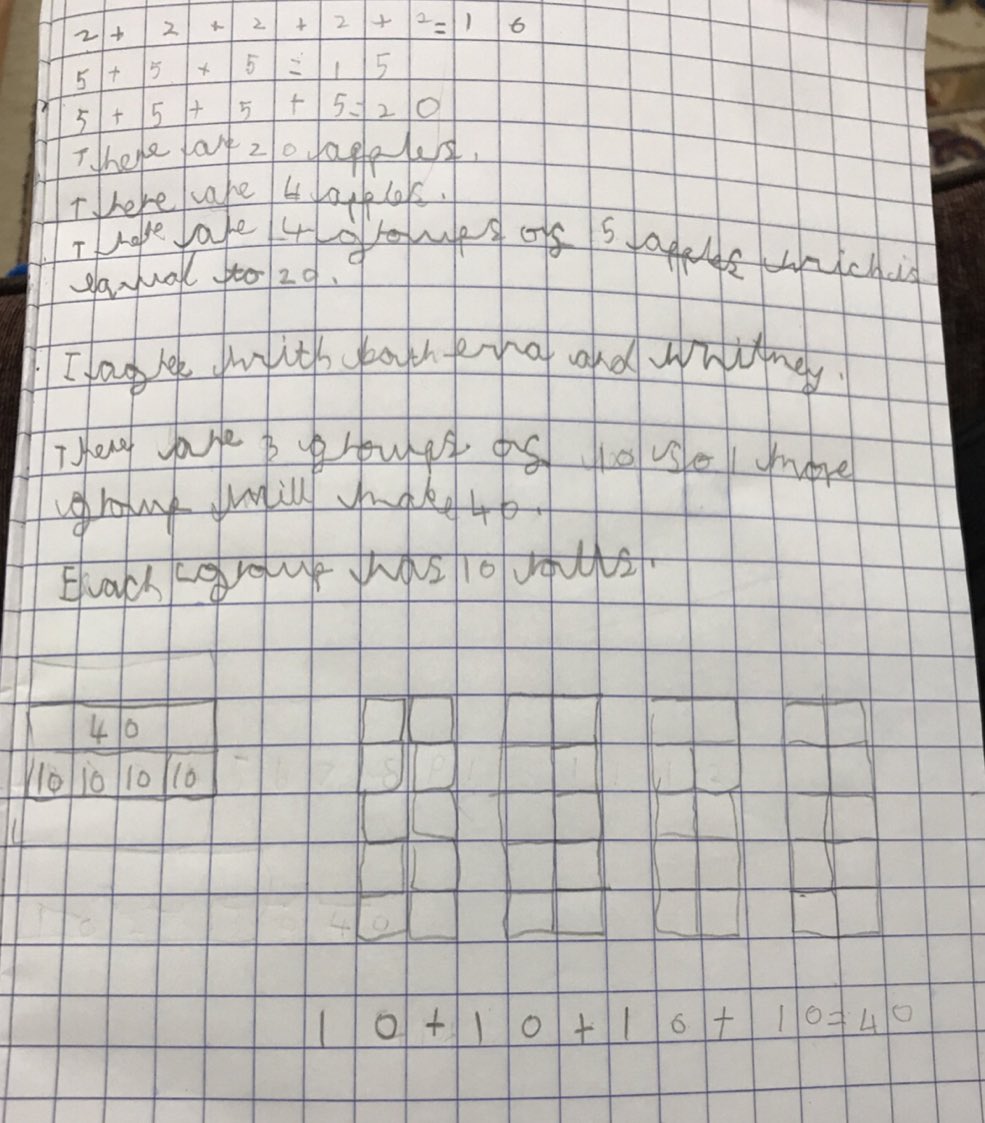 2 + 2 + 2 + 2 + 2 = 1 6
5 + 5 + 5 = 1 5
5 + 5 + 5 + 5 = 2 0
There are 20 apples.
There are 4 apples.
There are 4 groups of 5 apples which is
equal to 20.
I agree with both and Whitney.
There are 3 groups of 10 so 1 more
group will make 40.
Each group has 10
40
10 10 10 10
1 0 + 1 0 + 1 0 + 1 0 = 4 0